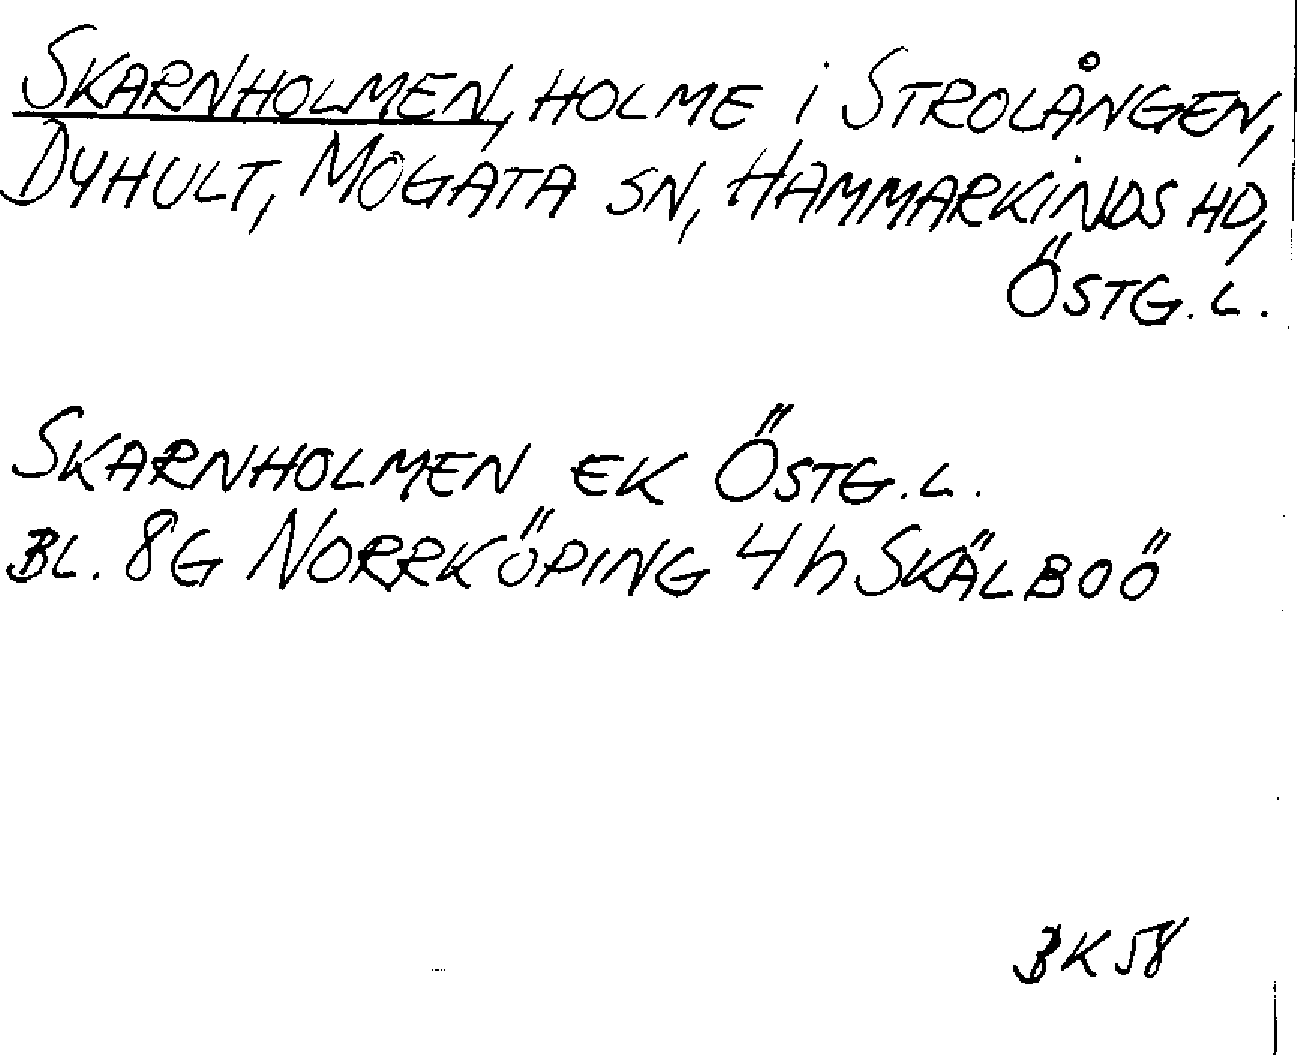 SKARNHOLMEN, HOLME i STROLÅNGEN,
DYHULT, MOGATA SN, HAMMARKINDS HD,
ÖSTG. L.
SKARNHOLMEN EK ÖSTG. L.
BL. 8G NORRKÖPING 4h SKÄLBOÖ
BK 58